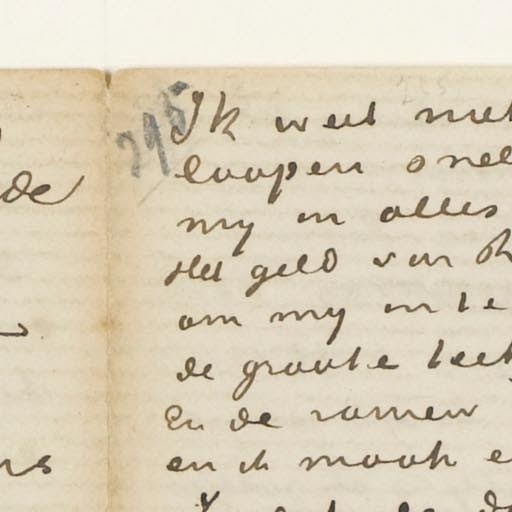 de
ns
295
Ik weet niet
loopen snel
my in alles
Het geld van
om my in te
de groote
En de ramen
en ik maak